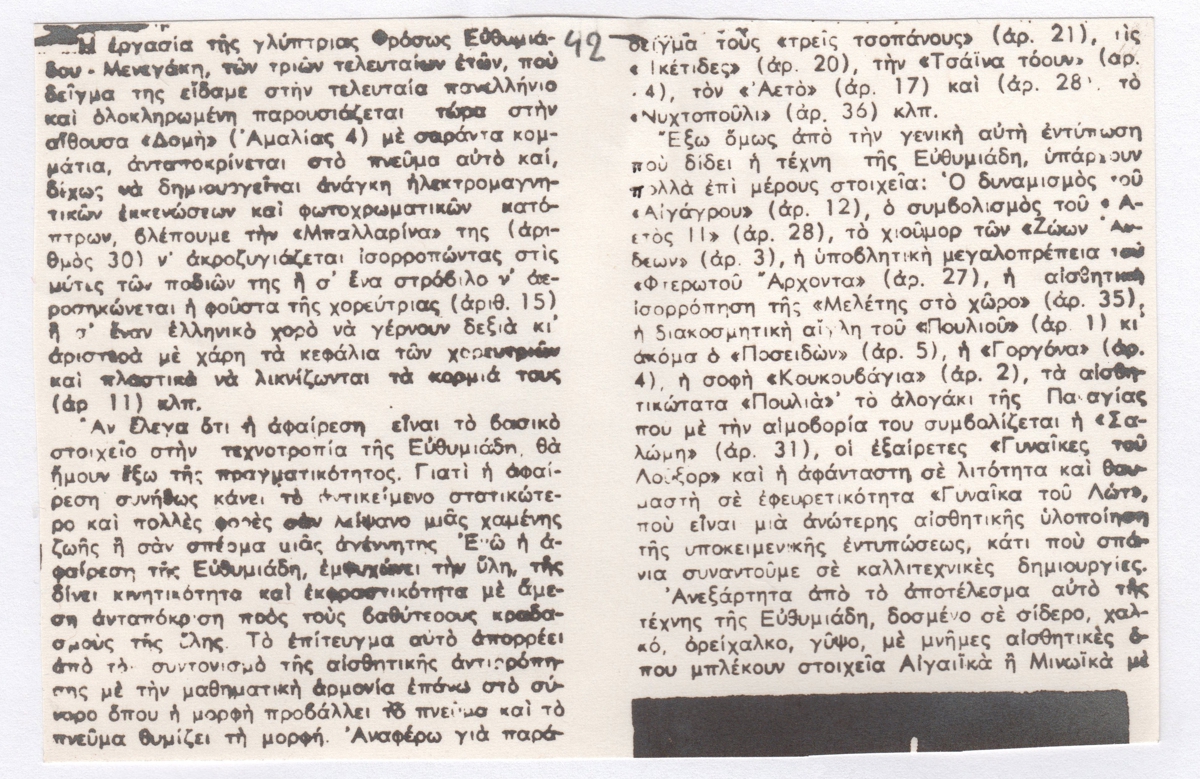 Ἡ ἐργασία τῆς γλύπτριας Φρόσως Εὐθυμιά-
δου - Μενεγάκη, τῶν τριῶν τελευταίων ἐτῶν, ποὺ
δεῖγμα της εἴδαμε στὴν τελευταία πανελλήνιο
καὶ ὁλοκληρωμένη παρουσιάζεται τώρα στὴν
αἴθουσα «Δομὴ» (Ἀμαλίας 4) μὲ σαράντα κομ-
μάτια, ἀνταποκρίνεται στὸ πνεῦμα αὐτὸ καί,
δίχως νὰ δημιουργεῖται ἀνάγκη ἠλεκτρομαγνη-
τικῶν ἐκκενώσεων καὶ φωτοχρωματικῶν κατό-
πτρων, βλέπουμε τὴν «Μπαλλαρίνα» της (ἀρι-
θμὸς 30) ν' ἀκροζυγιάζεται ἰσορροπώντας στὶς
μύτες τῶν ποδιῶν της ἢ σ' ἕνα στρόβιλο ν' ἀε-
ροσηκώνεται ἡ φούστα τῆς χορεύτριας (ἀριθ. 15)
ἢ σ' ἕναν ἑλληνικὸ χορὸ νὰ γέρνουν δεξιὰ κι'
ἀριστερὰ μὲ χάρη τὰ κεφάλια τῶν χορευτριῶν
καὶ πλαστικὰ νὰ λικνίζωνται τὰ κορμιά τους
(ἀρ 11) κλπ.
Ἂν ἔλεγα ὅτι ἡ ἀφαίρεση εἶναι τὸ βασικὸ
στοιχεῖο στὴν τεχνοτροπία τῆς Εὐθυμιάδη, θὰ
ἤμουν ἔξω τῆς πραγματικότητος. Γιατὶ ἡ ἀφαί-
ρεση συνήθως κάνει τὸ ἀντικείμενο στατικώτε-
ρο καὶ πολλὲς φορὲς σὰν λείψανο μιᾶς χαμένης
ζωῆς ἢ σὰν σπέρμα μιᾶς ἀγέννητης Ἐνῶ ἡ ἀ-
φαίρεση τῆς Εὐθυμιάδη, ἐμψυχώνει τὴν ὕλη, τῆς
δίνει κινητικότητα καὶ ἐκφραστικότητα μὲ ἄμε-
ση ἀνταπόκριση πρὸς τοὺς βαθύτερους κραδα-
σμοὺς τῆς ὕλης. Τὸ ἐπίτευγμα αὐτὸ ἀπορρέει
ἀπὸ τὸ συντονισμὸ τῆς αἰσθητικῆς ἀντιρρόπη-
σης μὲ τὴν μαθηματικὴ ἁρμονία ἐπάνω στὸ σύ-
νορο ὅπου ἡ μορφὴ προβάλλει τὸ πνεῦμα καὶ τὸ
πνεῦμα θυμίζει τὴ μορφή. Ἀναφέρω γιὰ παρά-
42
δειγμα τοὺς «τρεῖς τσοπάνους» (ἀρ. 21), τὶς
«Ἱκέτιδες» (ἀρ. 20), τὴν «Τσάϊνα τόουν» (ἀρ.
4), τὸν «Ἀετὸ» (ἀρ. 17) καὶ (ἀρ. 28) τὸ
«Νυχτοπούλι» (ἀρ. 36) κλπ.
Ἔξω ὅμως ἀπὸ τὴν γενικὴ αὐτὴ ἐντύπωση
ποὺ δίδει ἡ τέχνη τῆς Εὐθυμιάδη, ὑπάρχουν
πολλὰ ἐπὶ μέρους στοιχεῖα: Ὁ δυναμισμὸς τοῦ
«Αἰγάγρου» (ἀρ. 12), ὁ συμβολισμὸς τοῦ «Ἀ-
ετὸς II» (ἀρ. 28), τὸ χιοῦμορ τῶν «Ζώων Ἄν-
δεων» (ἀρ. 3), ἡ ὑποβλητικὴ μεγαλοπρέπεια τοῦ
«Φτερωτοῦ Ἄρχοντα» (ἀρ. 27), ἡ αἰσθητικὴ
ἰσορρόπηση τῆς «Μελέτης στὸ χῶρο» (ἀρ. 35),
ἡ διακοσμητικὴ αἴγλη τοῦ «Πουλιοῦ» (ἀρ. 1) κι'
ἀκόμα ὁ «Ποσειδὼν» (ἀρ. 5), ἡ «Γοργόνα» (ἀρ.
4), ἡ σοφὴ «Κουκουβάγια» (ἀρ. 2), τὰ αἰσθη-
τικώτατα «Πουλιὰ» τὸ ἀλογάκι τῆς Παναγίας
που μὲ τὴν αἱμοβορία του συμβολίζεται ἡ «Σα-
λώμη» (ἀρ. 31), οἱ ἐξαίρετες «Γυναῖκες τοῦ
Λοῦξορ» καὶ ἡ ἀφάνταστη σὲ λιτότητα καὶ θαυ-
μαστὴ σὲ ἐφευρετικότητα «Γυναῖκα τοῦ Λώτ»,
ποὺ εἶναι μιὰ ἀνώτερης αἰσθητικῆς ὑλοποίηση
τῆς υποκειμενικῆς ἐντυπώσεως, κάτι ποὺ σπά-
νια συναντοῦμε σὲ καλλιτεχνικὲς δημιουργίες.
Ἀνεξάρτητα ἀπὸ τὸ ἀποτέλεσμα αὐτὸ τῆς
τέχνης τῆς Εὐθυμιάδη, δοσμένο σὲ σίδερο, χαλ-
κό, ὀρείχαλκο, γῦψο, μὲ μνῆμες αἰσθητικὲς ὅ-
που μπλέκουν στοιχεῖα Αἰγαιϊκὰ ἢ Μινωϊκὰ μὲ